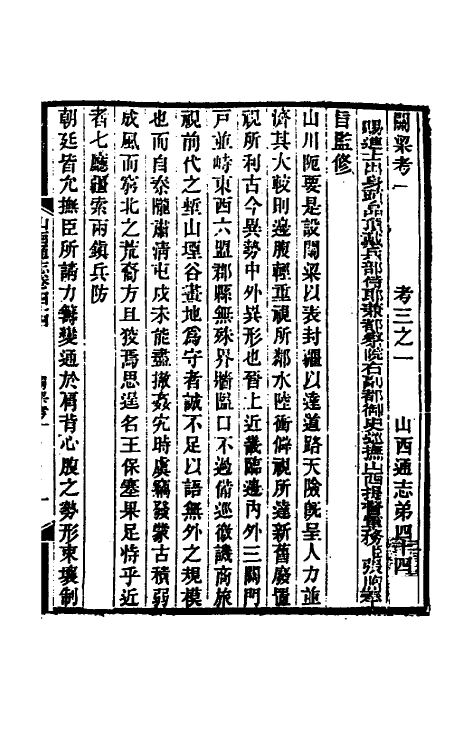 關梁考一 考三之一 山西通志第四十四
賜進士出身頭品頂戴兵部侍郎兼都察院右副都御史巡撫山西提督軍務臣張煦奉
旨監修
山川阨要是設關梁以表封疆以達道路天險旣呈人力並
濟其大較則邊腹輕重視所鄰水陸衝僻視所達新舊廢置
視所利古今異勢中外異形也晉上近畿臨邊內外三關門
戸並峙東西六盟郡縣無殊界墻隘口不過備巡徼譏商旅
視前代之塹山堙谷畫地爲守者誠不足以語無外之規模
也而自秦隴肅清屯戍未能盡撤姦宄時虞竊發蒙古積弱
成風而窮北之荒裔方且狡焉思逞名王保塞果足恃乎近
者七廳疆索兩鎮兵防
朝廷皆允撫臣所請力籌變通於肩背心腹之勢形東壤制
山西通志卷四十四 關梁考一 一